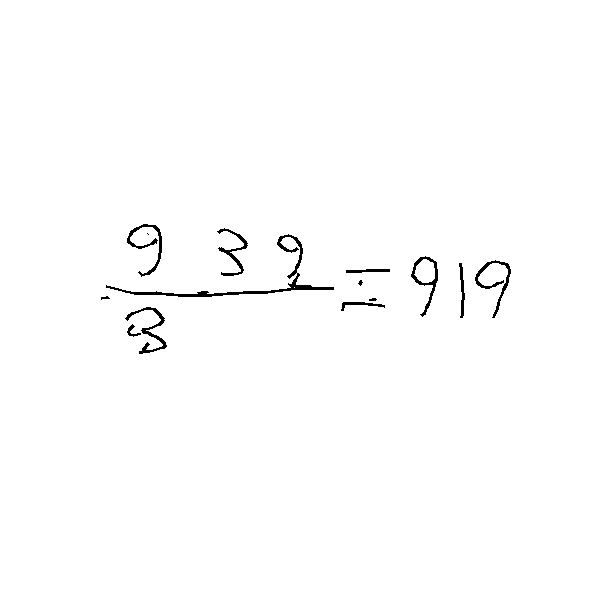 9 3 9
3
= 919